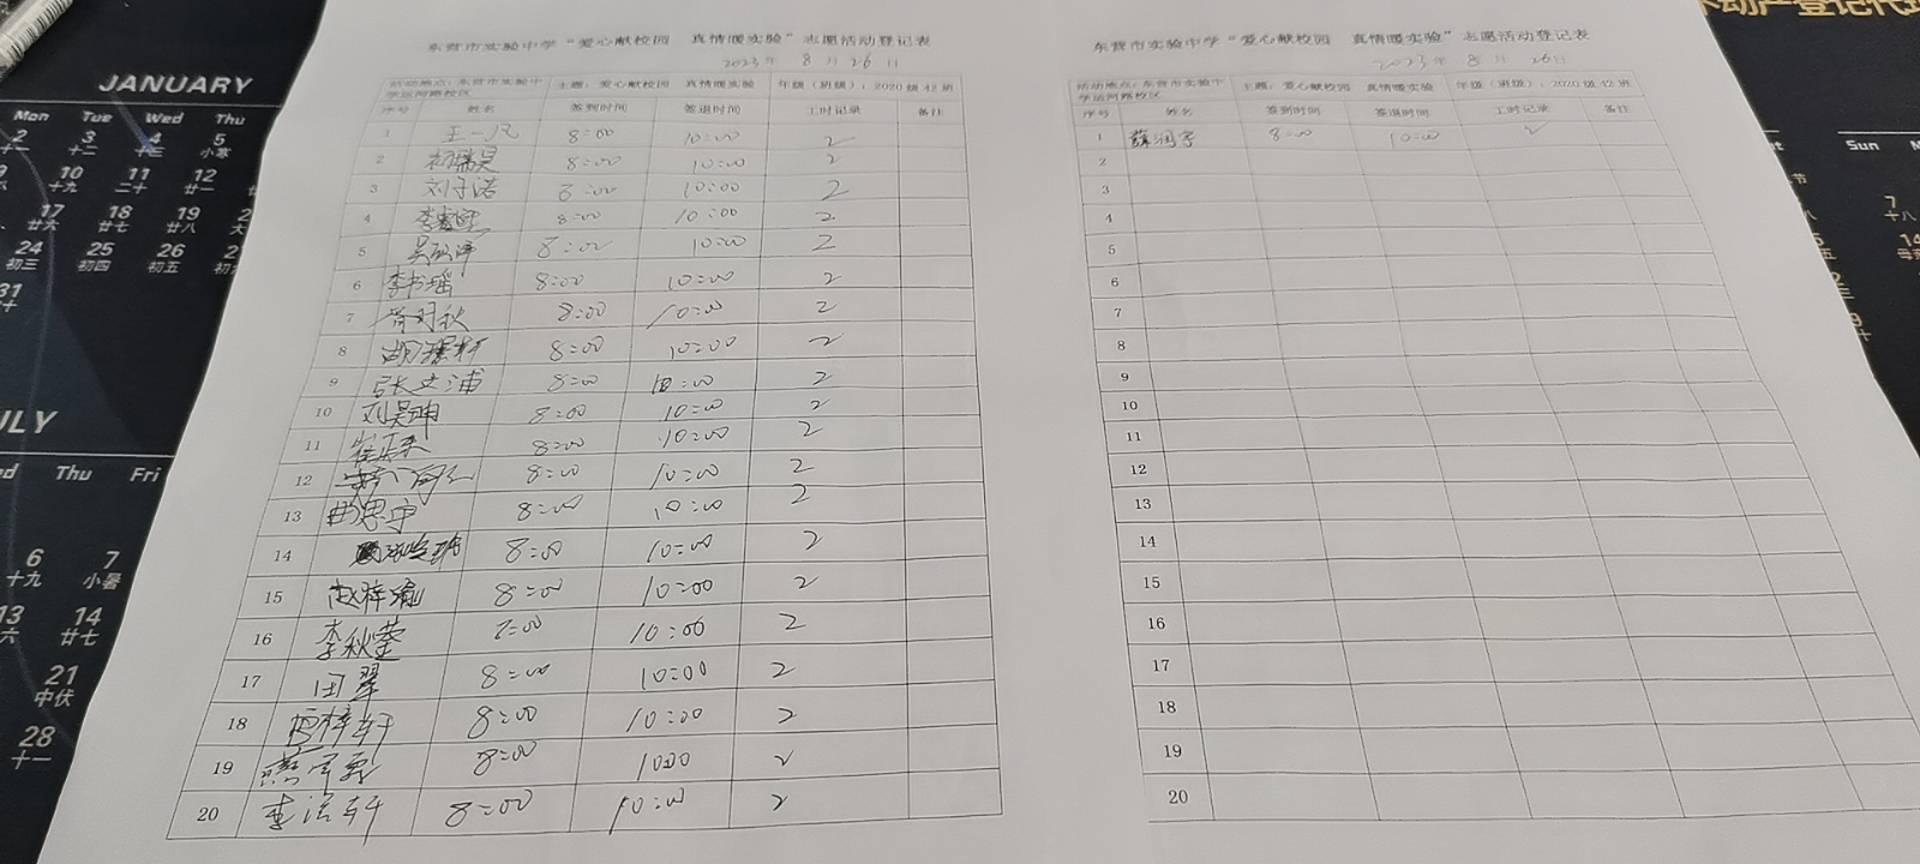 JANUARY
Mon Tue Wed Thu
2 3 4 5
十一 十二 十三 小寒
10 11 12
十九 二十 廿一
17 18 19
廿六 廿七 廿八
24 25 26
初三 初四 初五
31
Thu Fri
6 7
十九 小暑
13 14
六 廿七
21
中伏
28
十一
东营市实验中学“爱心献校园 真情暖实验”志愿活动登记表
2023年 8 月 26 日
活动地点：东营市实验中学运河路校区 主题：爱心献校园 真情暖实验 年级（班级）：2020级42班
序号 姓名 签到时间 签退时间 工时记录 备注
1 王一凡 8:00 10:00 2
2 8:00 10:00 2
3 刘子诺 8:00 10:00 2
4 8:00 10:00 2
5 8:00 10:00 2
6 李书瑶 8:00 10:00 2
7 肖明秋 8:00 10:00 2
8 8:00 10:00 2
9 张文浦 8:00 10:00 2
10 刘昊坤 8:00 10:00 2
11 8:00 10:00 2
12 8:00 10:00 2
13 曲思宇 8:00 10:00 2
14 8:00 10:00 2
15 赵梓瀚 8:00 10:00 2
16 李秋莹 8:00 10:00 2
17 田翠 8:00 10:00 2
18 梓轩 8:00 10:00 2
19 8:00 1000 2
20 李浩轩 8:00 10:00 2
东营市实验中学“爱心献校园 真情暖实验”志愿活动登记表
2023年 8 月 26日
活动地点：东营市实验中学运河路校区 主题：爱心献校园 真情暖实验 年级（班级）：2020级42班
序号 姓名 签到时间 签退时间 工时记录 备注
1 薛润宇 8:00 10:00 2
2
3
4
5
6
7
8
9
10
11
12
13
14
15
16
17
18
19
20
不动产登记代理
Sun
7
十八
14